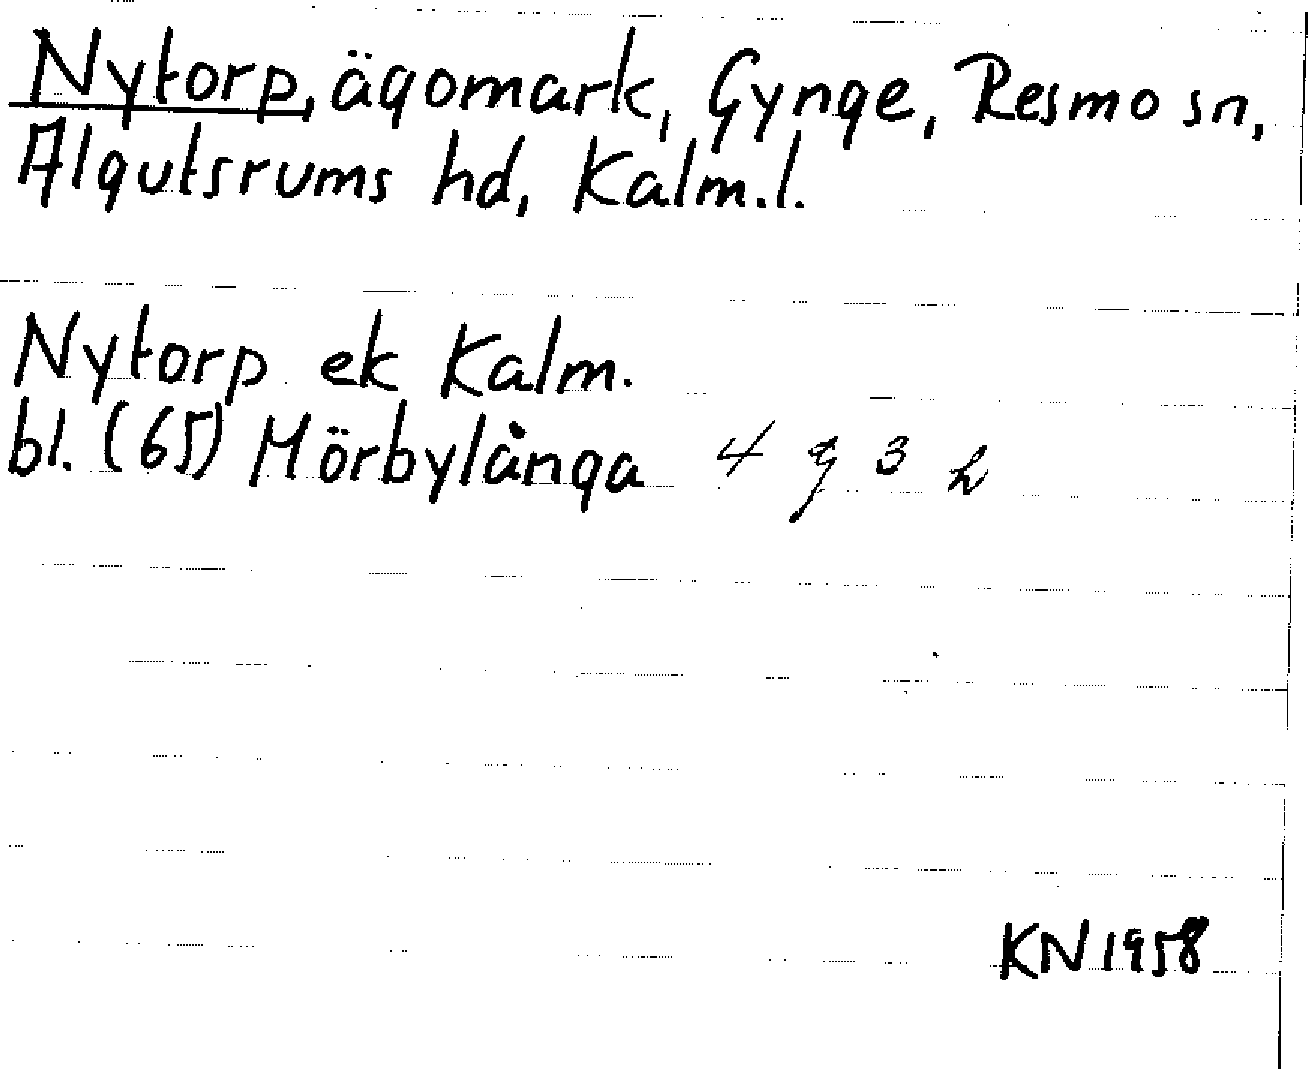 Nytorp, ägomark, Gynge, Resmo sn,
Algutsrums hd, Kalm.l.
Nytorp ek Kalm.
bl. (65) Mörbylånga 4 g 3 h
KN 1958